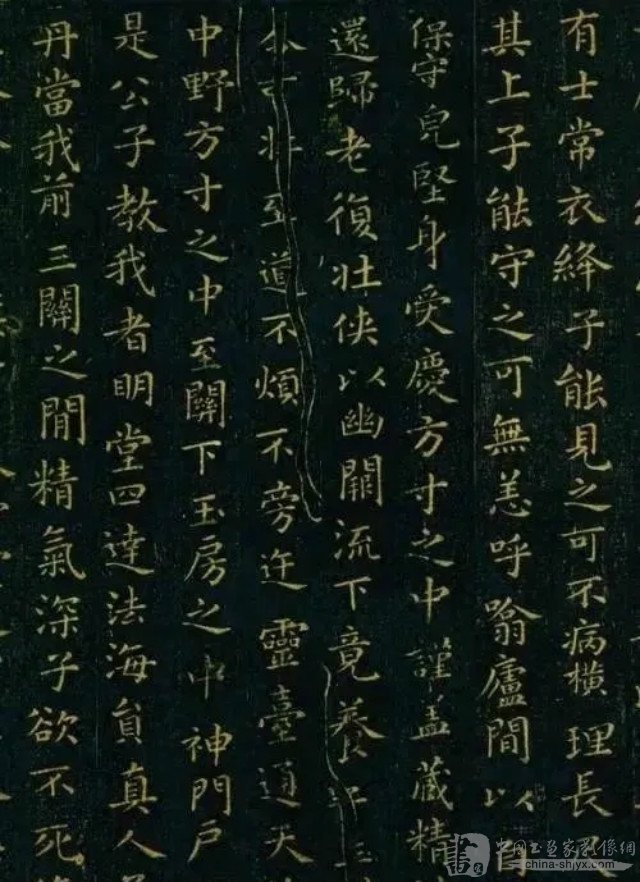 有士常衣絳子能見之可不病橫理長尺
其上子能守之可無恙呼噏廬間以自
保守皃堅身受慶方寸之中謹蓋藏精
還歸老復壯俠以幽闕流下竟養
至道不煩不旁迕靈臺通天
中野方寸之中至關下玉房之中神門戶
是公子教我者明堂四達法海貟真人
丹當我前三關之間精氣深子欲不死
中国书画家影像網
china-shjyx.com